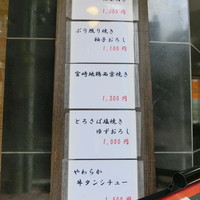 ぶり照り焼き
柚子おろし
1,100円
宮崎地鶏両面焼き
1,200円
とろさば塩焼き
ゆずおろし
1,000円
やわらか
牛タンシチュー